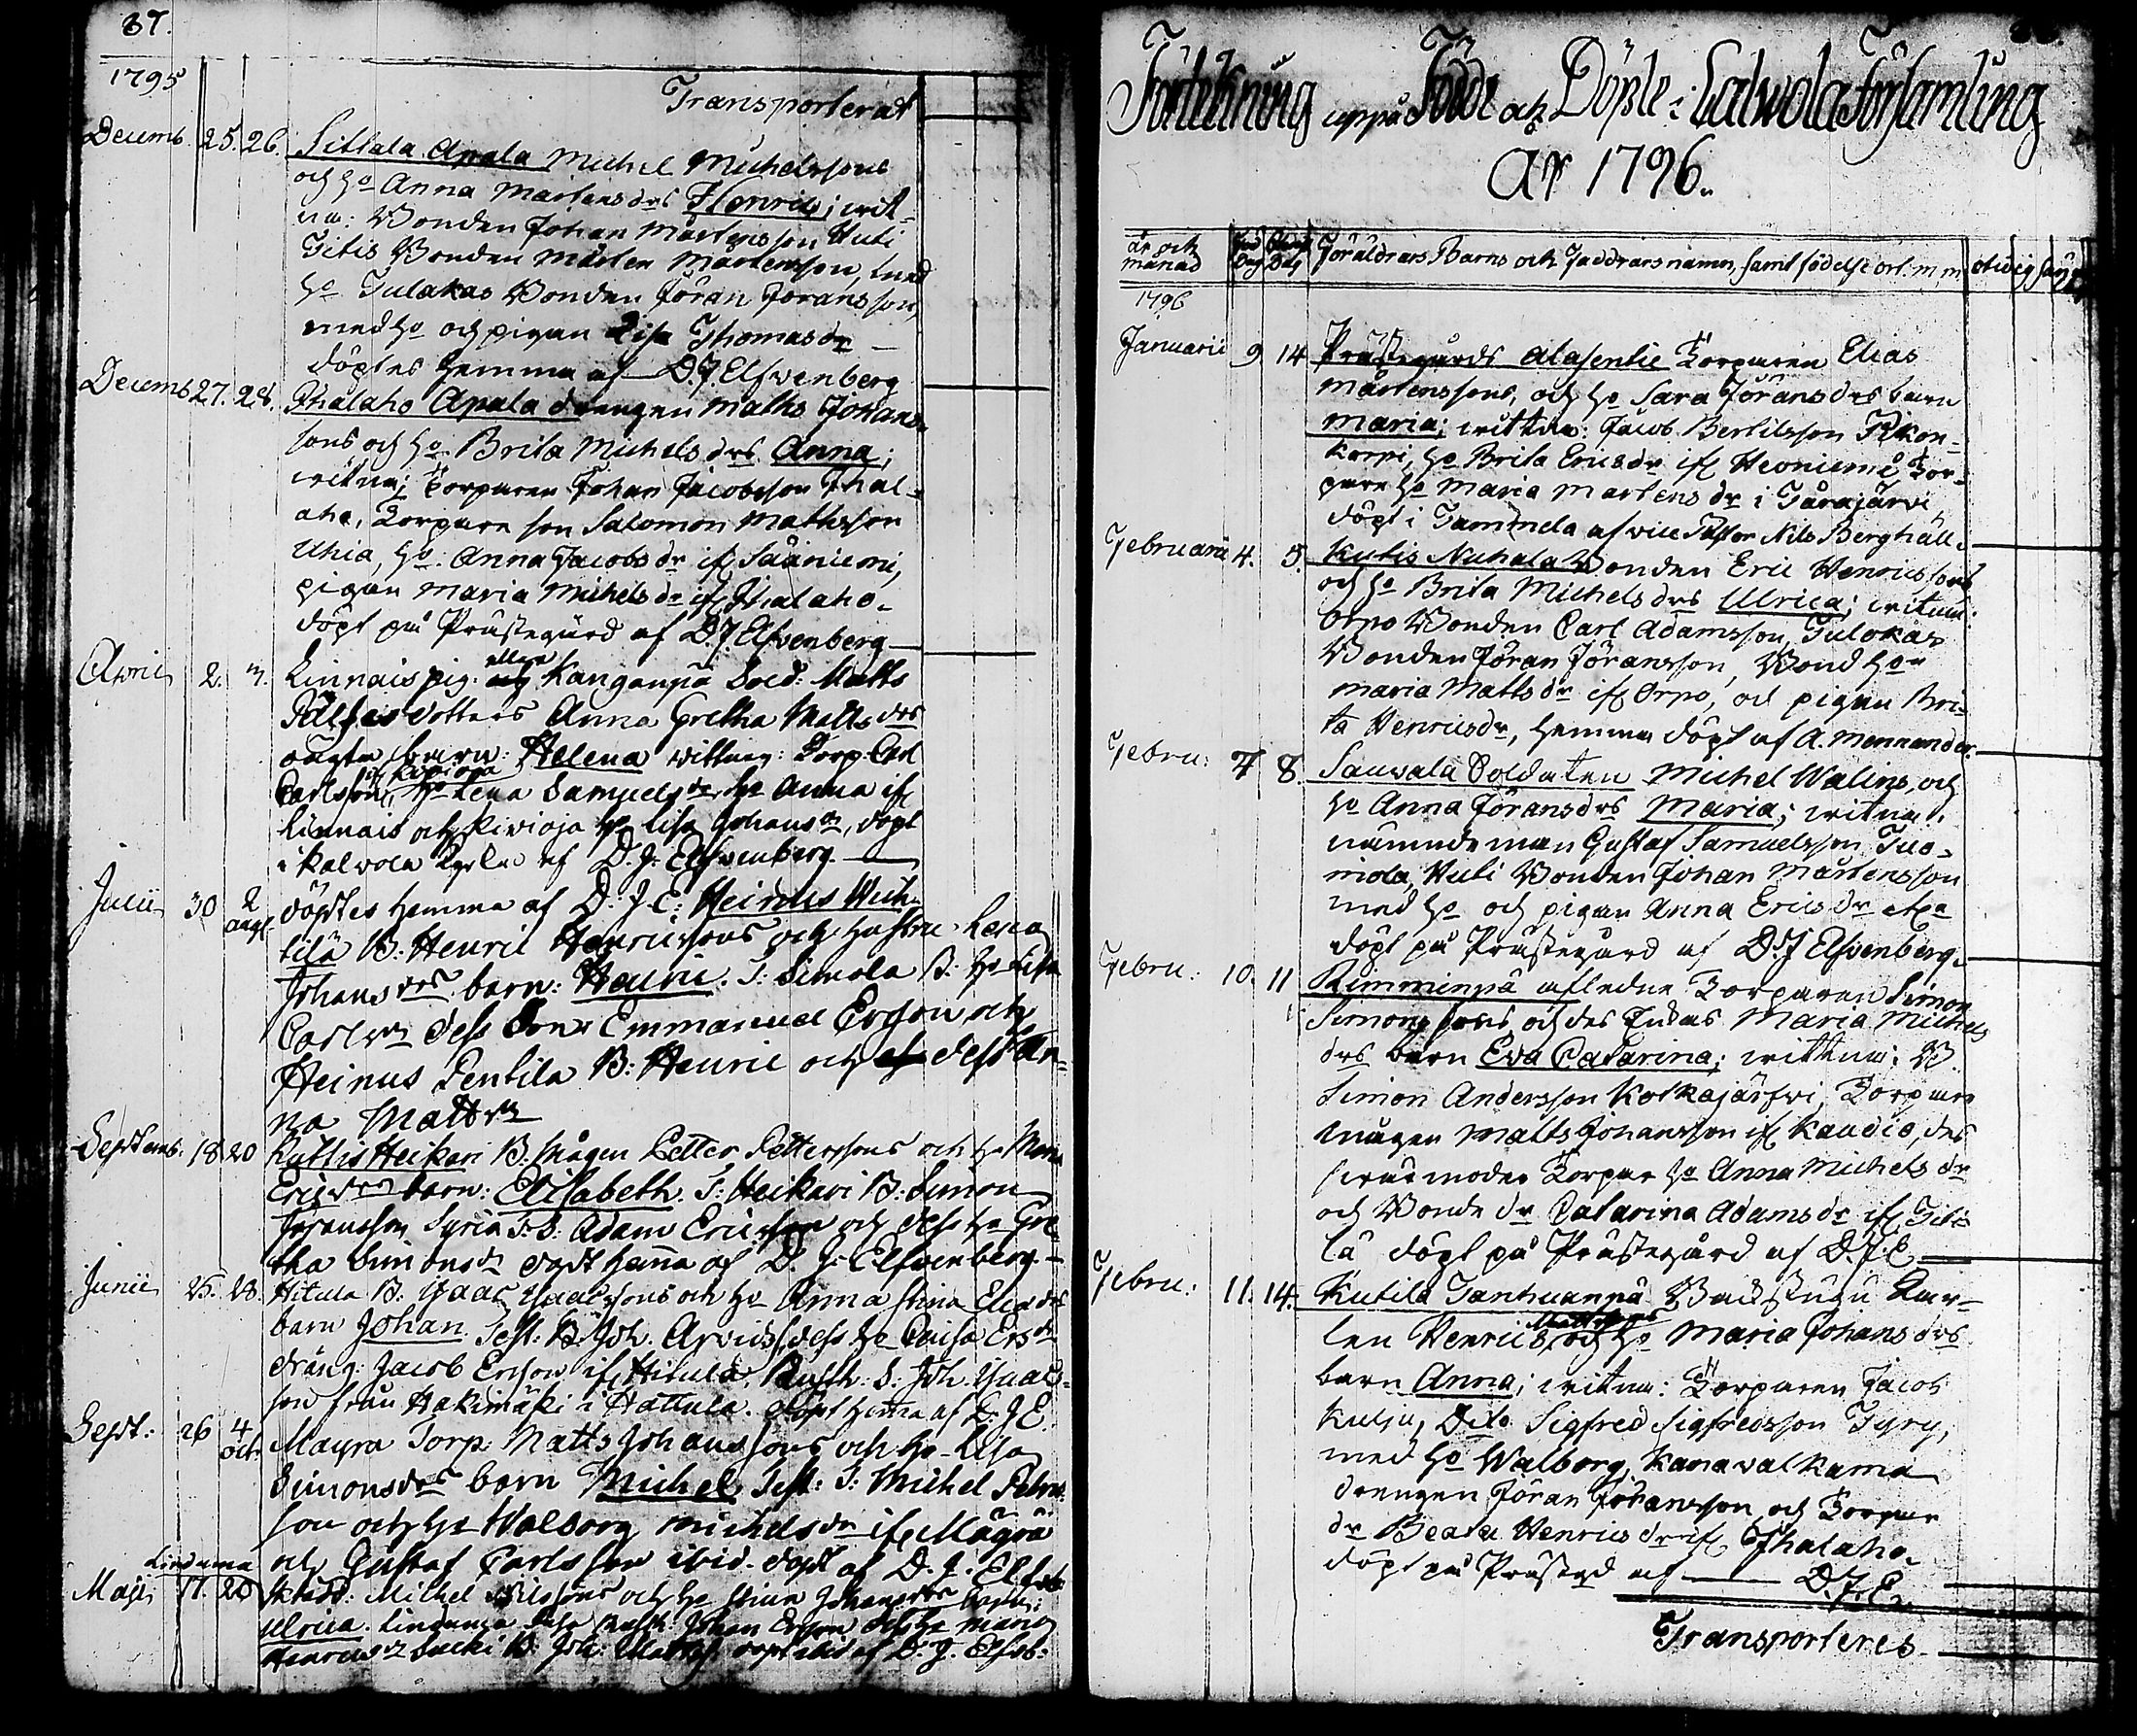 37.
1795
Transporterat
Decemb. 25. 26. Sittala Apala Michel Michelssons
och ho Anna Mårtens drs Henric; vit-
na: Bonden Johan Mårtensson Uuti
Titis Bonden Mårten Mårtensson, med
ho Tulakas Bonden Jöran Joransson,
med ho och pigan Lisa Thomas dr
döptes hemma af D.J Elfwenberg
Decemb 27. 28. Ihalaho Apala drengen Maths Johans-
sons och ho Brita Michels drs Anna;
vitna; Torparen Johan Jacobsson Ihal-
aho, Torpare son Salomon Mathsson
Uhia, ho: Anna Jacobs dr if Sääniemi,
pigan Maria Michels dr if Ihalaho.
döpt på Prästegård af D.J Elfvenberg
April 2. 3. Linnais pig. Kanganpä Sold: Matts
dotters Anna Gretha Matts drs
oägta barn: Helena vittna: Torp. Carl
Carlsson if Kivioja, ho Lena Samuels dr, ho Anna if
Linnais och Kivioja ho Lisa Johans dr, döpt
i Kalvola af D. J. Elfwenberg
Julii 30 2 aug. döptes hemma af D. J. E. Heinus
tilä B: Henric Henricssons och hustru Lena
Johans drs barn: Henric. T: Simola B. ho Lisa
Carls dr dess Son Emmanuel Ersson, och
Heinus Pentila B: Henric och dess An-
na Matts dr
Septemb. 18 20 Ruttis Heikari B. mågen Petter Petterssons och ho Maria
Erics drs barn: Elisabeth. T: Heikari B: Simon
Johansson, Syria T.S. Adam Ericsson och dess ho Gre-
tha Simons dr döpt hema af D. J. Elfvenberg.
Junii 25. 28. Hitula B. Isaac Isaacssons och ho Anna Stina Elias drs
barn Johan. Test: B. Joh. Arvidss, dess ho Caisa Ers dr
dräng: Jacob Ersson if Hitula, Rusth. S: Joh. Isaacs-
son från Hakimäki i Hattula. döpt hema af D. J E.
Sept: 26 4 Oct. Mayra Torp: Matts Johanssons och ho Lisa
Simons drs barn Michel Test: T: Michel Petters-
son och ho Walborg Michels dr if Mägrä
och Gustaf Carlsson ibid. döpt af D. J. Elfvb
Maji 17. 20 Lindama
Michel Nilssons och ho Stina Johans drs barn:
Ulrica. Lindama Rusth: Johan Ersson dess ho Maria
Henrics dr B. Joh: döpt ibid af D. J. Elfvb:
Förtekning uppå Födde och Döpte i Calwola Församling
År 1796.
år och månad Föd Dag Döpt Dag Föräldrars Barns och Faddrars namn, samt födelse ort. m, m.
1796
Januarii 9 14 Prästegårds Alasentie Torparen Elias
Mårtenssons, och ho Sara Jörans drs barn
Maria; vittna: Jacob Bertilsson Rikon-
korpi, ho Brita Erics dr if Heoniemi Tor-
pare ho Maria Martens dr i Tärajärvi
döpt i Tammela af vice Pastor Nils Berghäll.
Februarii 4. 5. Kutis Nuhala Bonden Eric Henricssons
och ho Brita Michels drs Ulrica; vitna:
Orpo Bonden Carl Adamsson, Tulokas
Bonden Jöran Jöransson, Bond ho
Maria Matts dr if Orpo, och pigan Bri-
ta Henrics dr, hemma döpt af A. Mennander.
Febru: 7 8. Sauvala Soldaten Michel Walins, och
ho Anna Jörans drs Maria; vitna.
nämndeman Gustaf Samuelsson Tuo-
mola, Uuti Bonden Johan Mårtensson
med ho och pigan Anna Erics dr
döpt på Prästegård af D.J Elfvenberg.
Febru.: 10. 11 Rimminpä afledne Torparen Simon
Simons sons, och des Enkas Maria Michels
drs barn Eva Catarina; vittna: B
Simon Andersson Kotkajärfvi, Torpare
mågen Matts Johansson if Kandio, des
Torpar ho Anna Michels dr
och Bonde dr Catarina Adams dr if
lä döpt på Prästegård af D.J.E
Febru.: 11. 14. Kutila Tanhuanpä Backstugu Kar-
len Henric Mattssons och ho Maria Johans drs
barn Anna; vitna: Torparen Jacob
Kulju, Dito Sigfred Sigfredsson Tyry,
med ho Walborg, Kanavalkama
drengen Jöran Jöransson och Torpar
dr Beata Henrics dr if Ihalaho.
döpt på Prästegd af D.J.E.
Transporteres